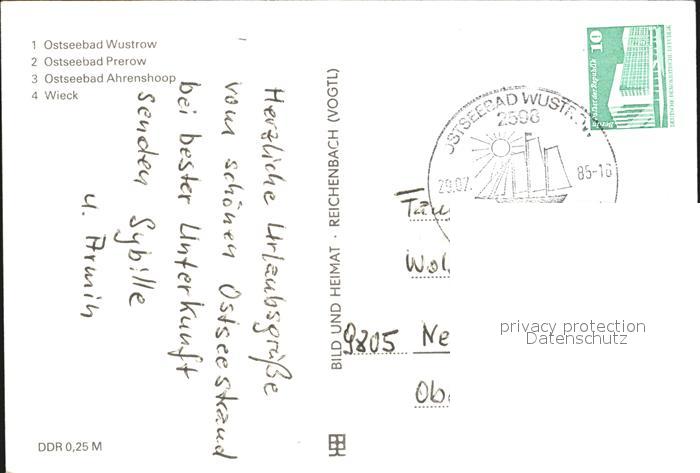 1 Ostseebad Wustrow
2 Ostseebad Prerow
3 Ostseebad Ahrenshoop
4 Wieck
Herzliche Urlaubsgrüße
vom schönen Ostseestrand
bei bester Unterkunft
senden Sybille
u. Armin
DDR 0,25 M
BILD UND HEIMAT · REICHENBACH (VOGTL)
10
Palast der Republik
Berlin
DEUTSCHE DEMOKRATISCHE REPUBLIK
OSTSEEBAD WUSTROW
2598
29.07. 85-16
Fam
Wol
9805 Ne
Ob
privacy protection
Datenschutz